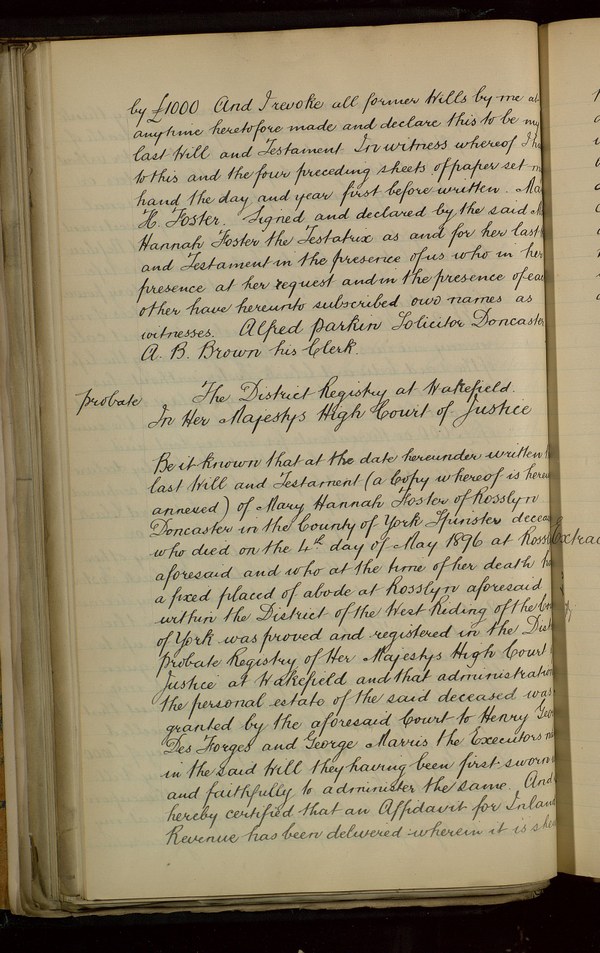 by £1000 And I revoke all former Wills by me at
anytime heretofore made and declare this to be my
last Will and Testament In witness whereof I
to this and the four preceding sheets of paper set
hand the day and year first before written. Ma
H. Foster. Signed and declared by the said M
Hannah Foster the Testatrix as and for her last
and Testament in the presence of us who in her
presence at her request and in the presence of eac
other have hereunto subscribed our names as
witnesses. Alfred Parkin Solicitor Doncaster
A. B. Brown his Clerk.
Probate The District Registry at Wakefield.
In Her Majestys High Court of Justice
Be it known that at the date hereunder written
last Will and Testament (a Copy whereof is hereu
annexed) of Mary Hannah Foster of Rosslyn
Doncaster in the County of York Spinster decea
who died on the 4th day of May 1896 at Rossl
Extrac
aforesaid and who at the time of her death h
a fixed placed of abode at Rosslyn aforesaid
within the District of the West Riding of the Co
of York was proved and registered in the Dist
Probate Registry of Her Majestys High Court
Justice at Wakefield and that administration
the personal estate of the said deceased was
granted by the aforesaid Court to Henry Geo
Des Forges and George Marris the Executors
in the said Will they having been first sworn
and faithfully to administer the same. And
hereby certified that an Affidavit for Inlan
Revenue has been delivered wherein it is she